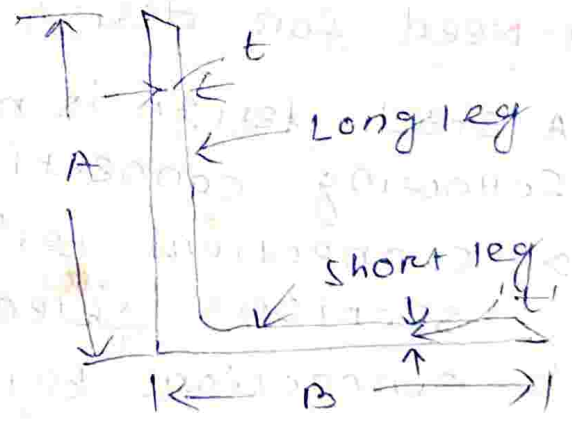 t
Long leg
A
Short leg
't'
B